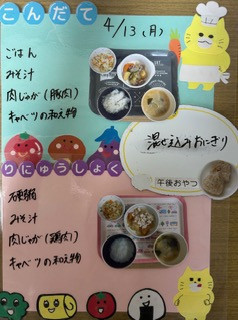 こんだて
4/13(月)
ごはん
みそ汁
肉じゃが(豚肉)
キャベツの和え物
混ぜ込みおにぎり
午後おやつ
りにゅうしょく
軟飯
みそ汁
肉じゃが(鶏肉)
キャベツの和え物